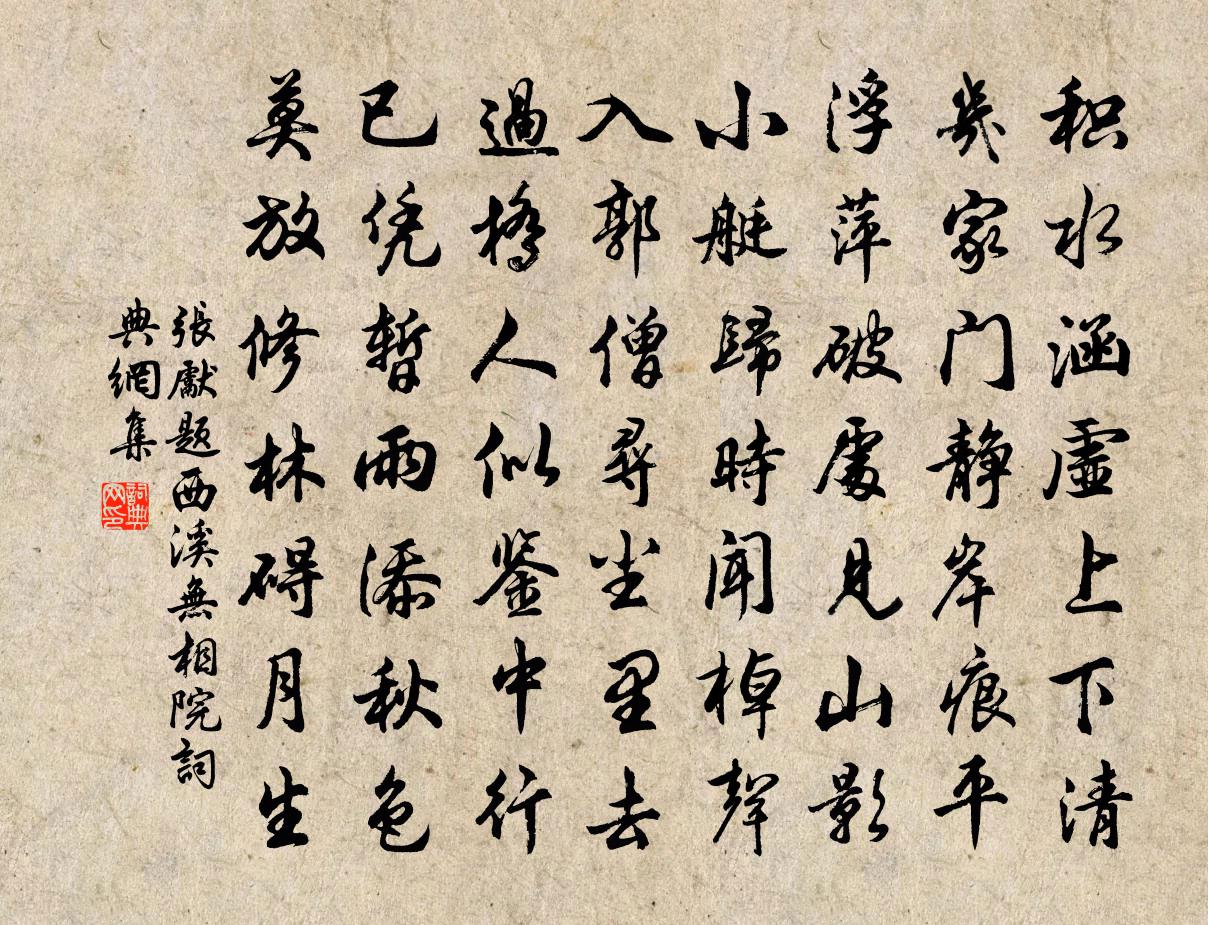 积水涵虚上下清
几家门静岸痕平
浮萍破处见山影
小艇歸時闻棹聲
入郭僧尋尘里去
過橋人似鉴中行
已凭暫雨添秋色
莫放修林碍月生
張獻題西溪無相院詞
典網集
詞典